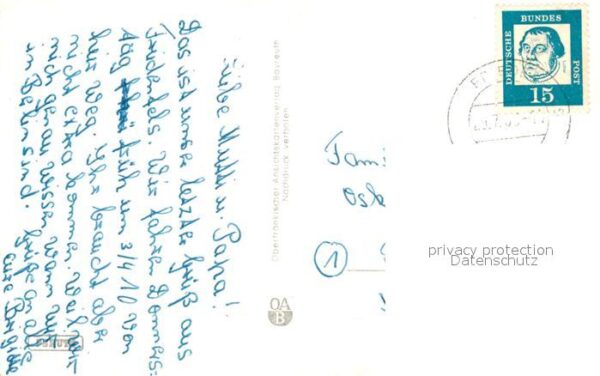 Liebe Mutti u. Papa!
Das ist unser letzter Gruß aus
Friedenfels. Wir fahren Donners=
tag früh um 3/4 10 von
hier weg. Ihr braucht aber
nicht extra kommen. Weil wir
nicht genau wissen wann wir
in Berlin sind. Grüße an alle
eure Brigitte
Oberfränkischer Ansichtskartenverlag Bayreuth
Nachdruck verboten
OA
B
DEUTSCHE BUNDESPOST
15
Fami
Osk
1
privacy protection
Datenschutz